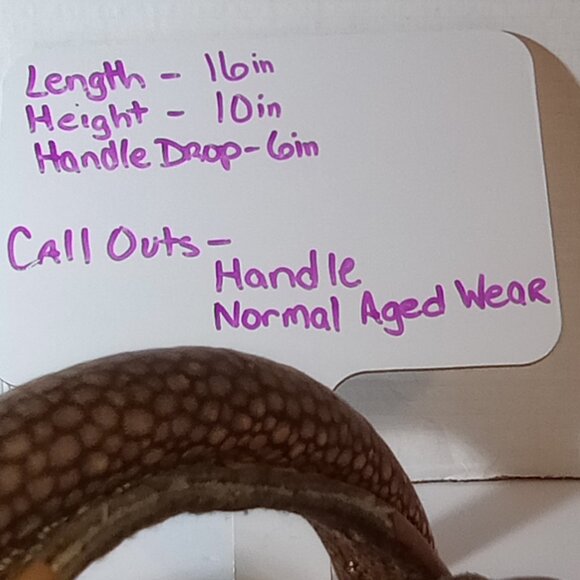 Length - 16in
Height - 10in
Handle Drop - 6in
Call Outs -
Handle
Normal Aged Wear